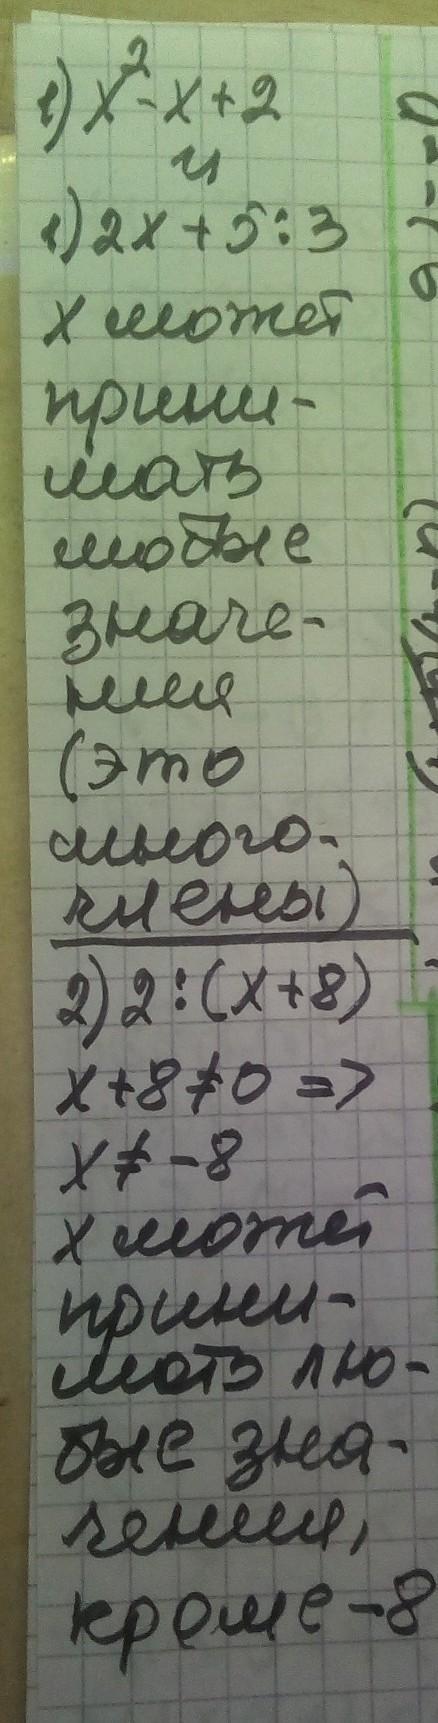 1) x² - x + 2
и
1) 2x + 5 : 3
x может
прини-
мать
любые
значе-
ния
(это
много-
члены)
2) 2 : (x + 8)
x + 8 ≠ 0 =>
x ≠ -8
x может
прини-
мать лю-
бые зна-
чения,
кроме -8